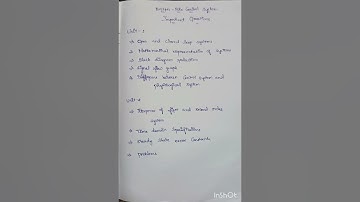 Control System
Important Questions
Unit - 1
Open and closed loop systems
Mathematical representation of systems
Block diagram reduction
Signal flow graph
Difference between control system and
physiological system
Unit - 2
Response of first and second order
system
Time domain specifications
Steady state error constants
problems
InShOt